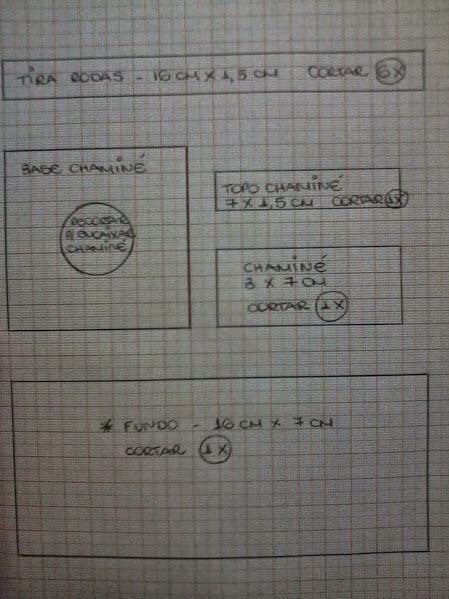 TIRA RODAS - 16 CM X 1,5 CM CORTAR 6X
BASE CHAMINÉ
RECORTAR
P/ ENCAIXAR
CHAMINÉ
TOPO CHAMINÉ
7 X 1,5 CM CORTAR 1X
CHAMINÉ
3 X 7 CM
CORTAR 1X
* FUNDO - 16 CM X 7 CM
CORTAR 1X